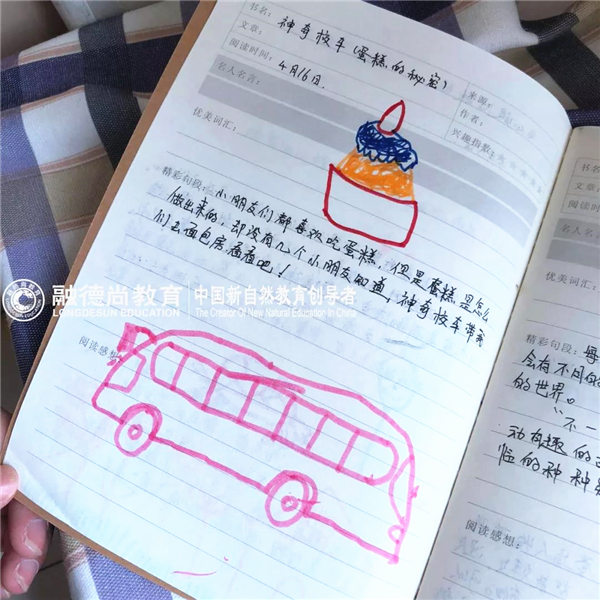 书名：神奇校车(蛋糕的秘密)
文章：
来源：
阅读时间：4月16日.
作者：
名人名言：
兴趣指数：★★★★
优美词汇：
精彩句段：小朋友们都喜欢吃蛋糕，但是蛋糕是怎么
做出来的，却没有几个小朋友知道，神奇校车带我
们去面包房看看吧！
阅读感想：
融德尚教育 中国新自然教育创导者
LONGDESUN EDUCATION The Creator Of New Natural Education In China
书名：
文章：
阅读时
名人名
优美词汇
精彩句段：每
会有不同的
的世界。
“不一
动有趣的
的种种
阅读感想：